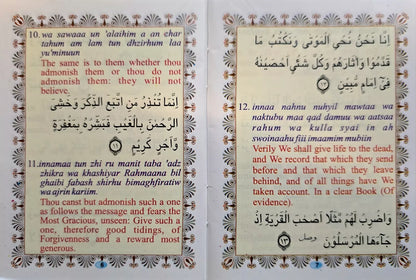 10. wa sawaaa un 'alaihim a an ehar
tahum am lam tun dhzirhum laa
yu'minuun
The same is to them whether thou
admonish them or thou do not
admonish them: they will not
believe.
اِنَّمَا تُنْذِرُ مَنِ اتَّبَعَ الذِّكْرَ وَخَشِيَ
الرَّحْمٰنَ بِالْغَيْبِ فَبَشِّرْهُ بِمَغْفِرَةٍ
وَّاَجْرٍ كَرِيْمٍ ﴿١١﴾
11. innamaa tun zhi ru manit taba 'adz
zhikra wa khashiyar Rahmaana bil
ghaibi fabash shirhu bimaghfiratiw
wa ajrin kariim.
Thou canst but admonish such a one
as follows the message and fears the
Most Gracious, unseen: Give such a
one, therefore good tidings, of
Forgiveness and a reward most
generous.
6
اِنَّا نَحْنُ نُحْيِ الْمَوْتٰى وَنَكْتُبُ مَا
قَدَّمُوْا وَاٰثَارَهُمْ وَكُلَّ شَيْءٍ اَحْصَيْنٰهُ
فِيْٓ اِمَامٍ مُّبِيْنٍ ﴿١٢﴾
12. innaa nahnu nuhyil mawtaa wa
naktubu maa qad damuu wa aatsaa
rahum wa kulla syai in ah
swoinaahu fiii imaamim mubiin
Verily We shall give life to the dead,
and We record that which they send
before and that which they leave
behind, and of all things have We
taken account. In a clear Book (Of
evidence).
وَاضْرِبْ لَهُمْ مَّثَلًا اَصْحٰبَ الْقَرْيَةِ اِذْ
جَآءَهَا الْمُرْسَلُوْنَ ﴿١٣﴾
7